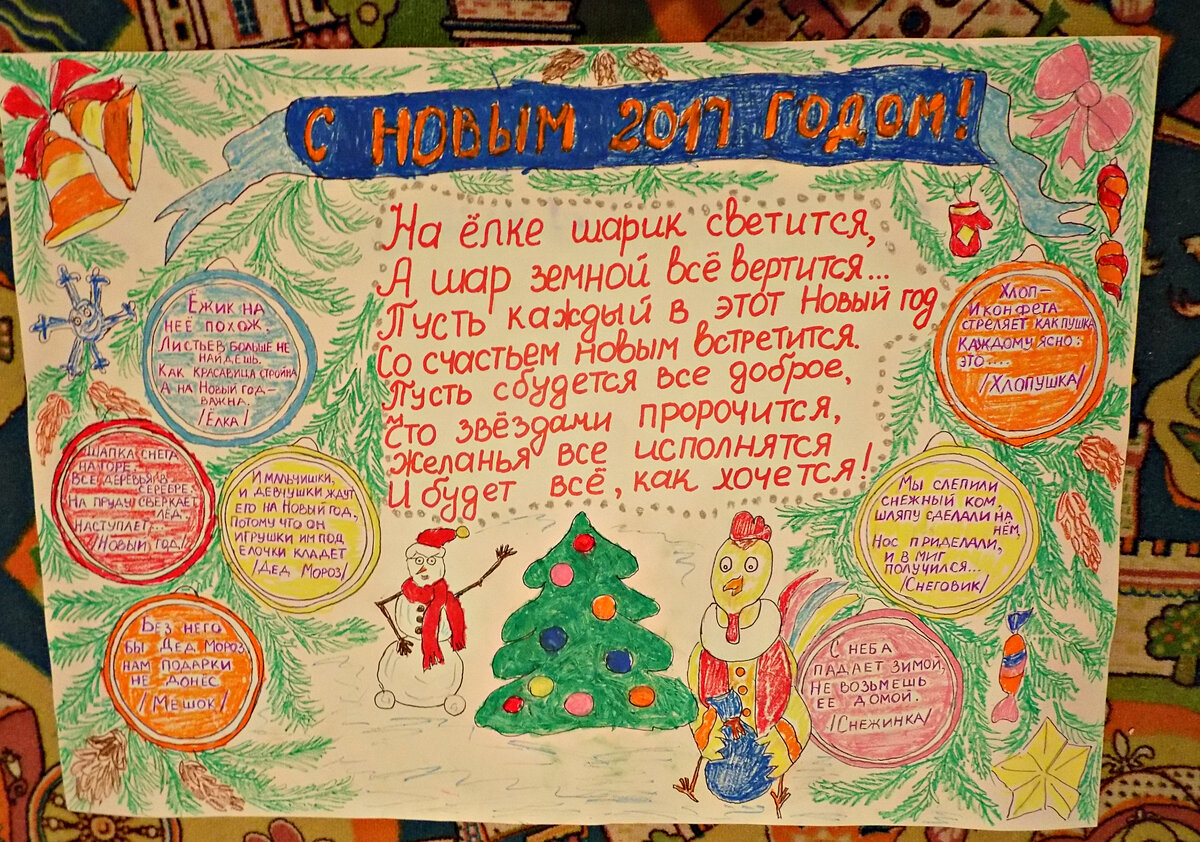 С НОВЫМ 2017 ГОДОМ!
На ёлке шарик светится,
А шар земной всё вертится...
Пусть каждый в этот Новый год
Со счастьем новым встретится.
Пусть сбудется все доброе,
Что звёздами пророчится,
Желанья все исполнятся
И будет всё, как хочется!
ЕЖИК НА
НЕЁ ПОХОЖ,
ЛИСТЬЕВ БОЛЬШЕ НЕ
НАЙДЕШЬ.
КАК КРАСАВИЦА СТРОЙНА
А НА НОВЫЙ ГОД-
ВАЖНА.
/ЁЛКА/
ШАПКА СНЕГА
НА ГОРЕ.
ВСЕ ДЕРЕВЬЯ В
СЕРЕБРЕ.
НА ПРУДУ СВЕРКАЕТ
ЛЁД,
НАСТУПАЕТ...
/НОВЫЙ ГОД!/
И МАЛЬЧИШКИ,
И ДЕВЧУШКИ ЖДУТ
ЕГО НА НОВЫЙ ГОД,
ПОТОМУ ЧТО ОН
ИГРУШКИ ИМ ПОД
ЕЛОЧКИ КЛАДЕТ
/ДЕД МОРОЗ/
БЕЗ НЕГО
БЫ ДЕД МОРОЗ
НАМ ПОДАРКИ
НЕ ДОНЕС
/МЕШОК/
ХЛОП-
И КОНФЕТА
СТРЕЛЯЕТ КАК ПУШКА
КАЖДОМУ ЯСНО:
ЭТО....
/ХЛОПУШКА/
МЫ СЛЕПИЛИ
СНЕЖНЫЙ КОМ,
ШЛЯПУ СДЕЛАЛИ НА
НЁМ.
НОС ПРИДЕЛАЛИ,
И В МИГ
ПОЛУЧИЛСЯ...
/СНЕГОВИК/
С НЕБА
ПАДАЕТ ЗИМОЙ,
НЕ ВОЗЬМЕШЬ
ЕЁ ДОМОЙ.
/СНЕЖИНКА/